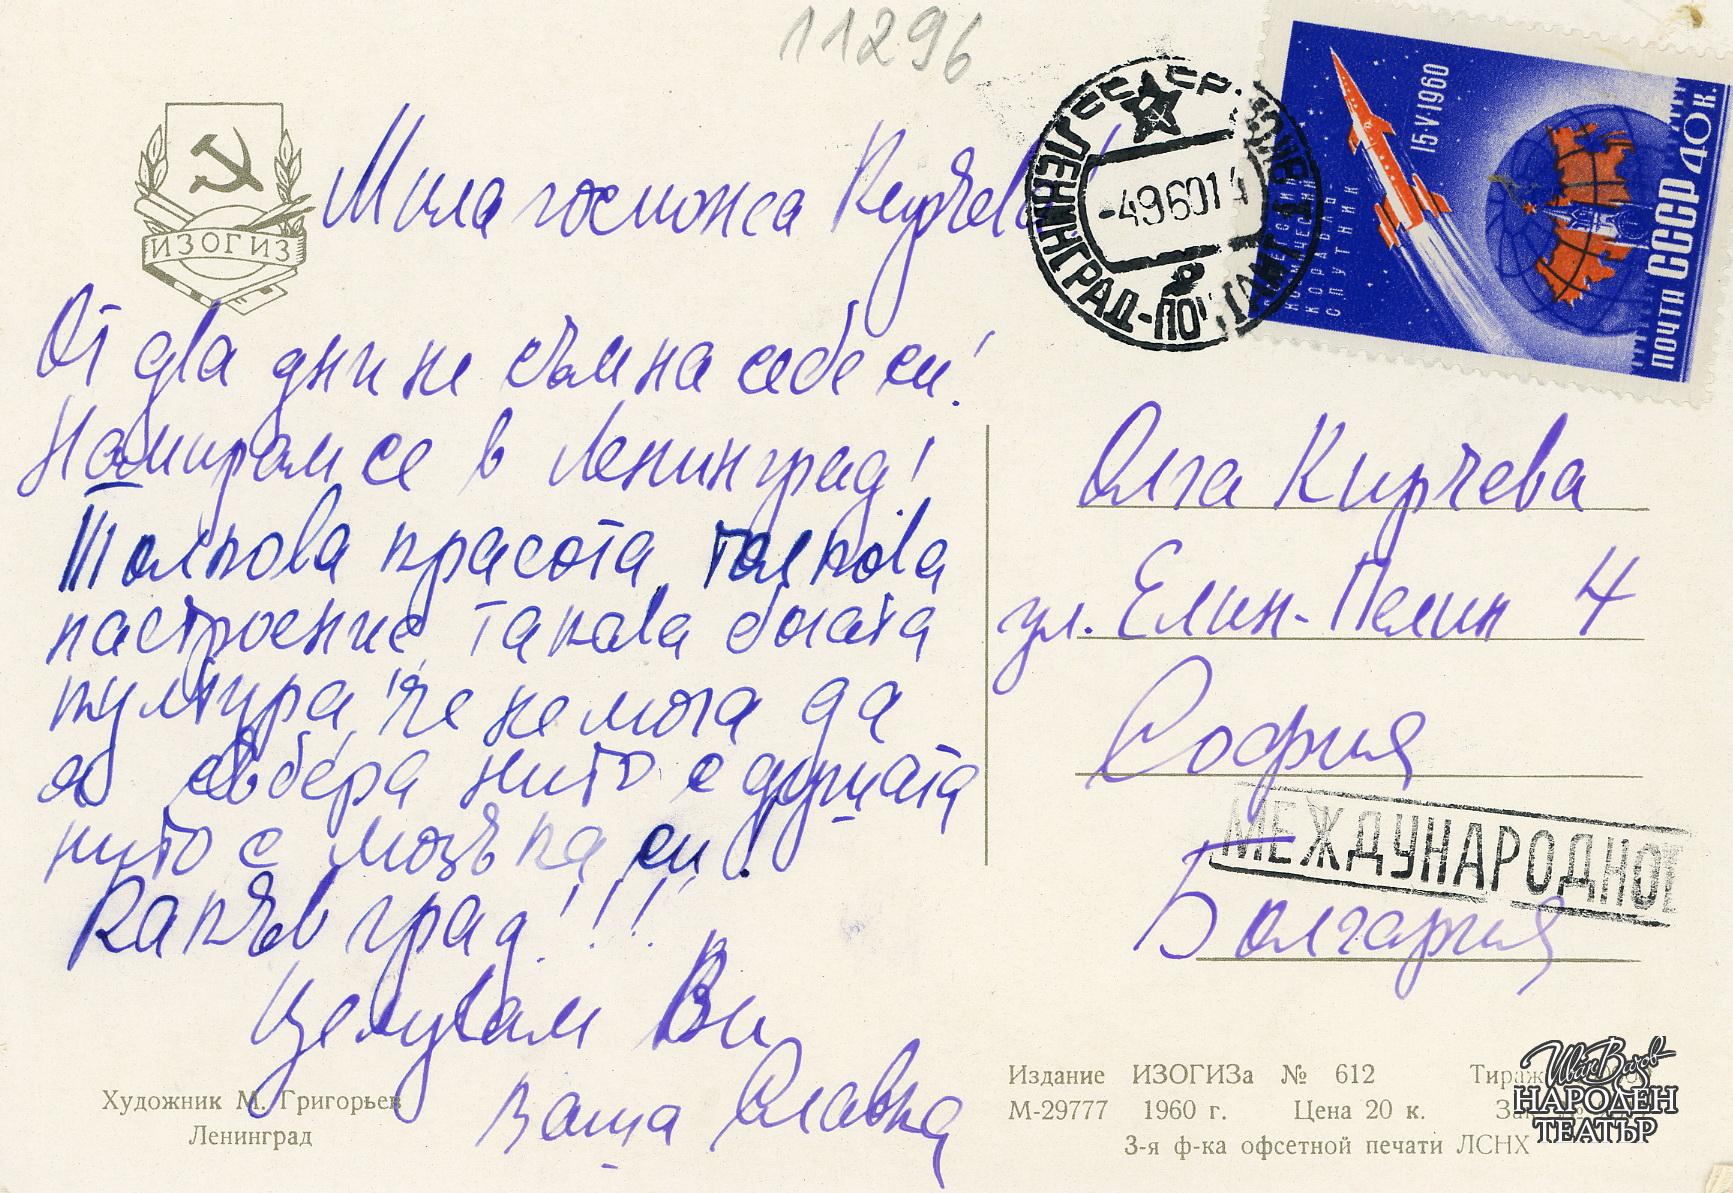 11296
ИЗОГИЗ
Мила госпожа Кирчева!
От два дни не съм на себе си!
Намирам се в Ленинград!
Толкова красота, толкова
настроение, такава богата
култура, че не мога да
я събера нито с душата
нито с мозъка си!
Какъв град!!!
Целувам Ви
Ваша Славка
Художник М. Григорьев
Ленинград
СССР
ЛЕНИНГРАД-ПОЧТАМТ
-496014
2
15·V·1960
КОРАБЛЬ
СПУТНИК
ПОЧТА СССР 40 К.
Олга Кирчева
ул. Елин-Пелин 4
София
МЕЖДУНАРОДНОЕ
Болгария
Издание ИЗОГИЗа № 612
М-29777 1960 г. Цена 20 к.
3-я ф-ка офсетной печати ЛСНХ
Иван Вазов
НАРОДЕН
ТЕАТЪР